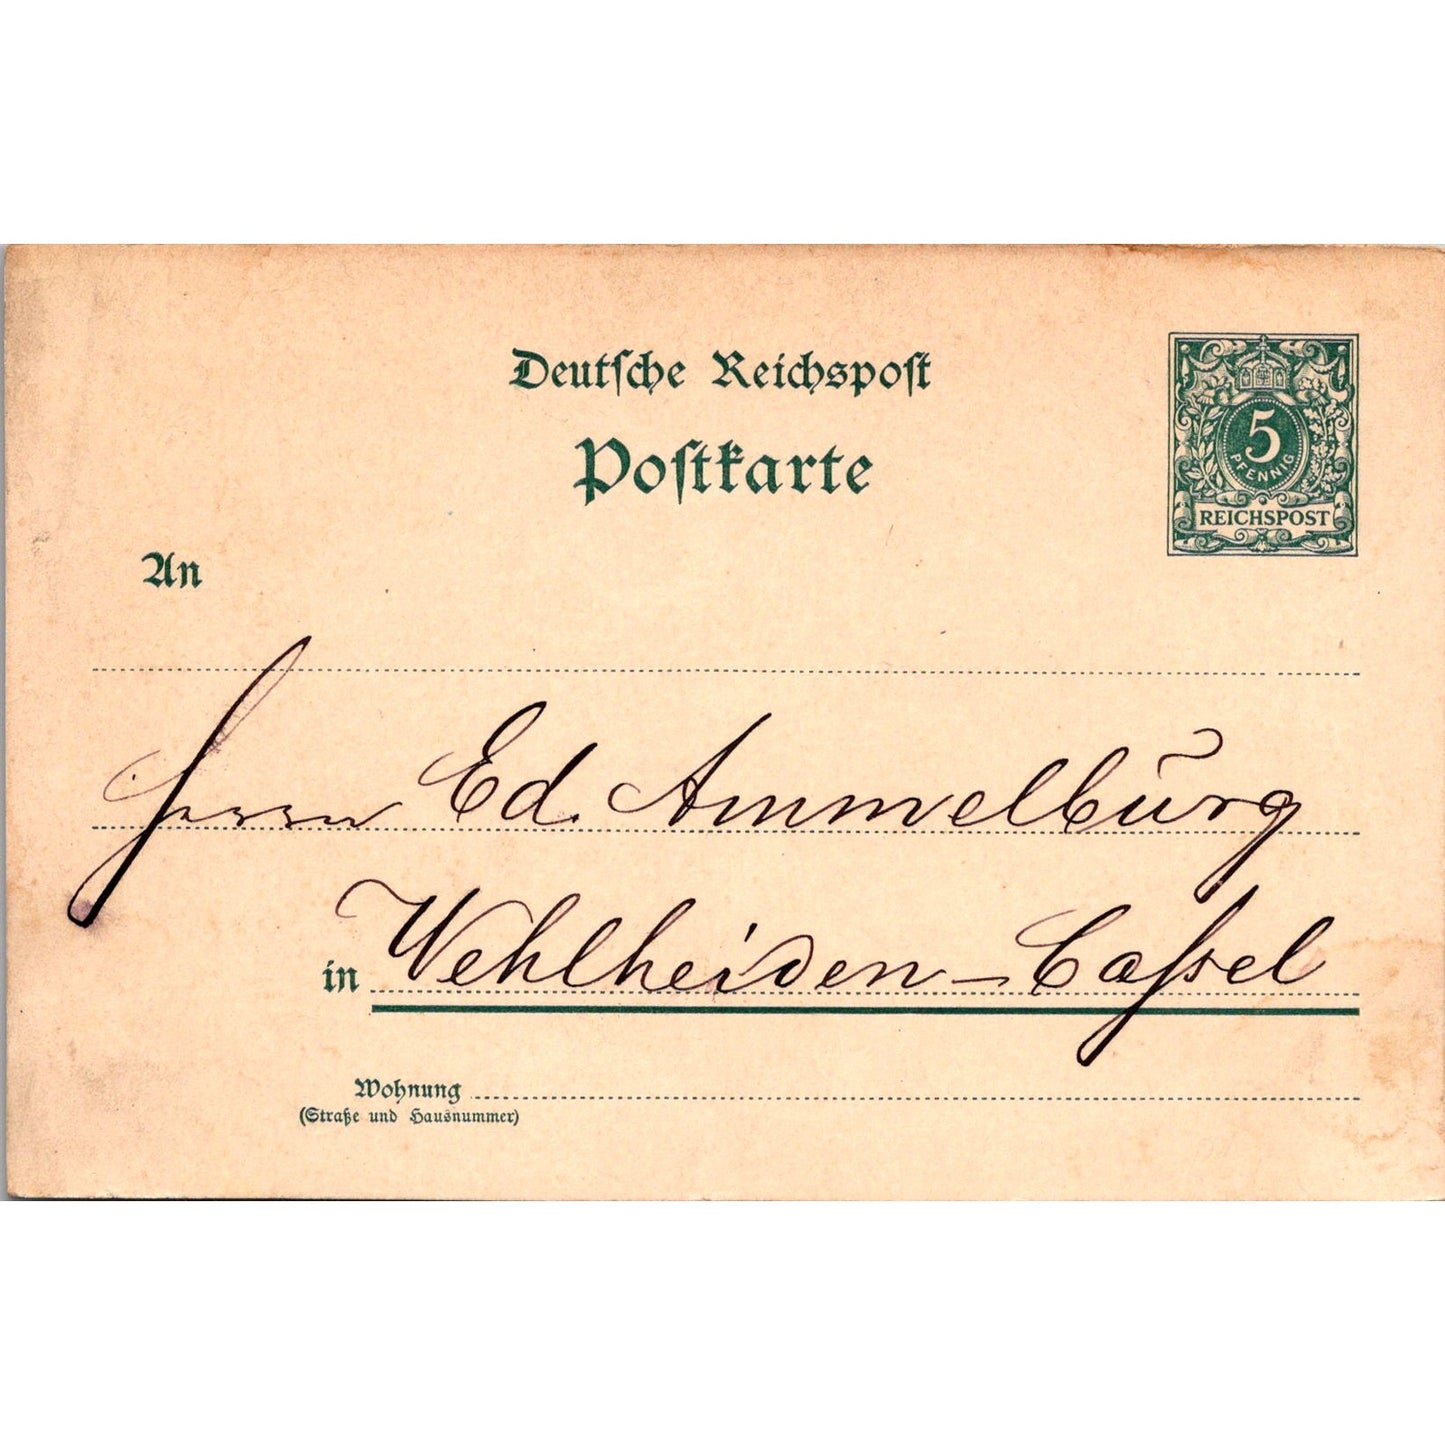 Deutsche Reichspost
Postkarte
5
PFENNIG
REICHSPOST
An
Herrn Ed. Ammelburg
in Wehlheiden-Cassel
Wohnung
(Straße und Hausnummer)